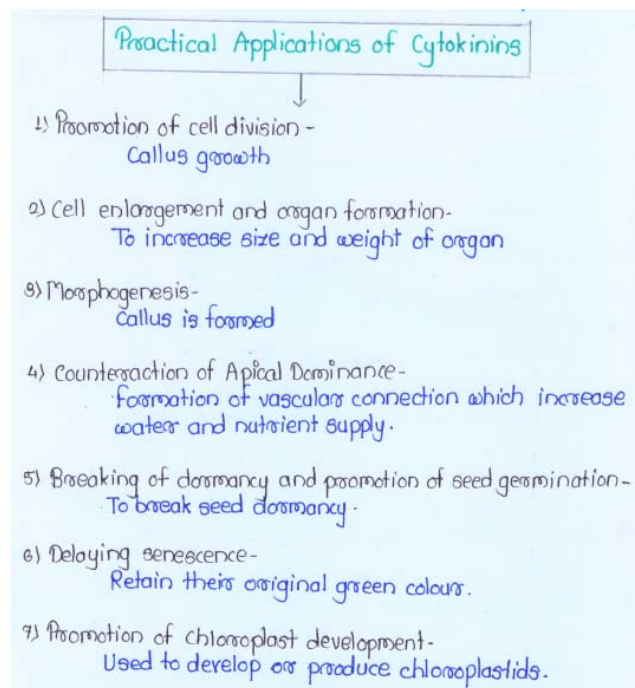 Practical Applications of Cytokinins
1) Promotion of cell division -
Callus growth
2) Cell enlargement and organ formation-
To increase size and weight of organ
3) Morphogenesis-
Callus is formed
4) Counteraction of Apical Dominance-
Formation of vascular connection which increase
water and nutrient supply.
5) Breaking of dormancy and promotion of seed germination-
To break seed dormancy.
6) Delaying senescence-
Retain their original green colour.
7) Promotion of chloroplast development-
Used to develop or produce chloroplastids.